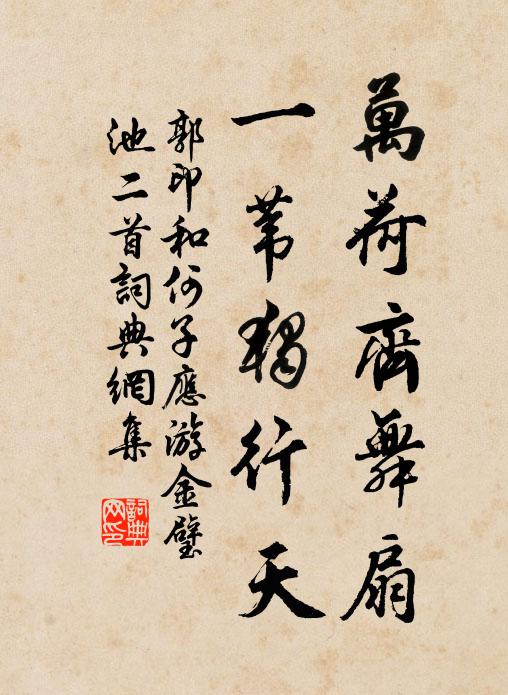 萬荷齊舞扇
一苇獨行天
郭印和何子應游金璧
池二首詞典網集
詞典网印